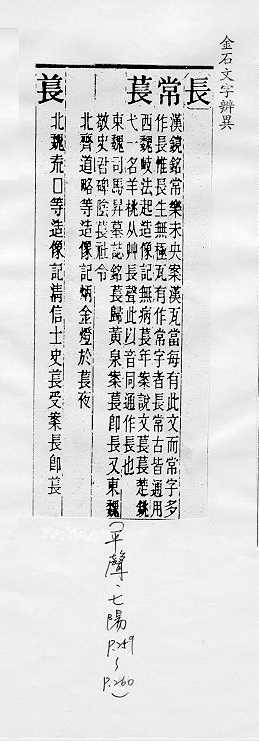 金石文字辨異
長
常
漢鏡銘常樂未央案漢瓦當每有此文而常字多
作長惟長生無極瓦有作常字者長常古皆通用
萇
西魏岐法起造像記無病萇年案說文萇萇楚銚
弋一名羊桃从艸長聲此以音同通作長也
東魏司馬昇墓誌銘萇歸黃泉案萇即長又東魏
敬史君碑陰萇社令
北齊道略等造像記炳金燈於萇夜
北魏口等造像記清信士史萇受案長即萇
(平聲·七陽
P.259
~
P.260)